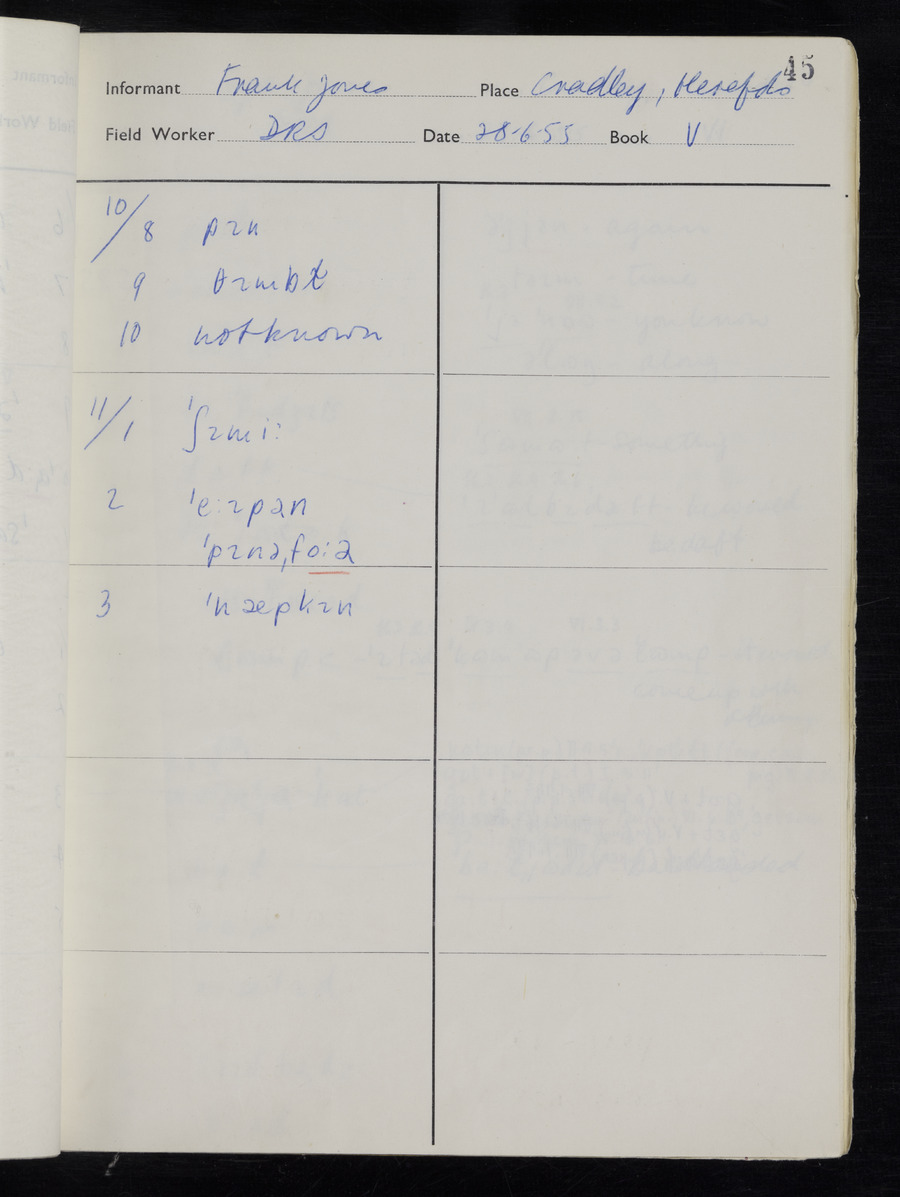 45
Informant Frank Jones Place Cradley, Herefds
Field Worker DRS Date 28-6-55 Book V
10/8 pɪn
9 θɪmbɫ
10 not known
11/1 ˈʃɪmiː
2 ˈeːɪpɹən
ˈpɪnəˌfoːə
3 ˈnæpkɪn